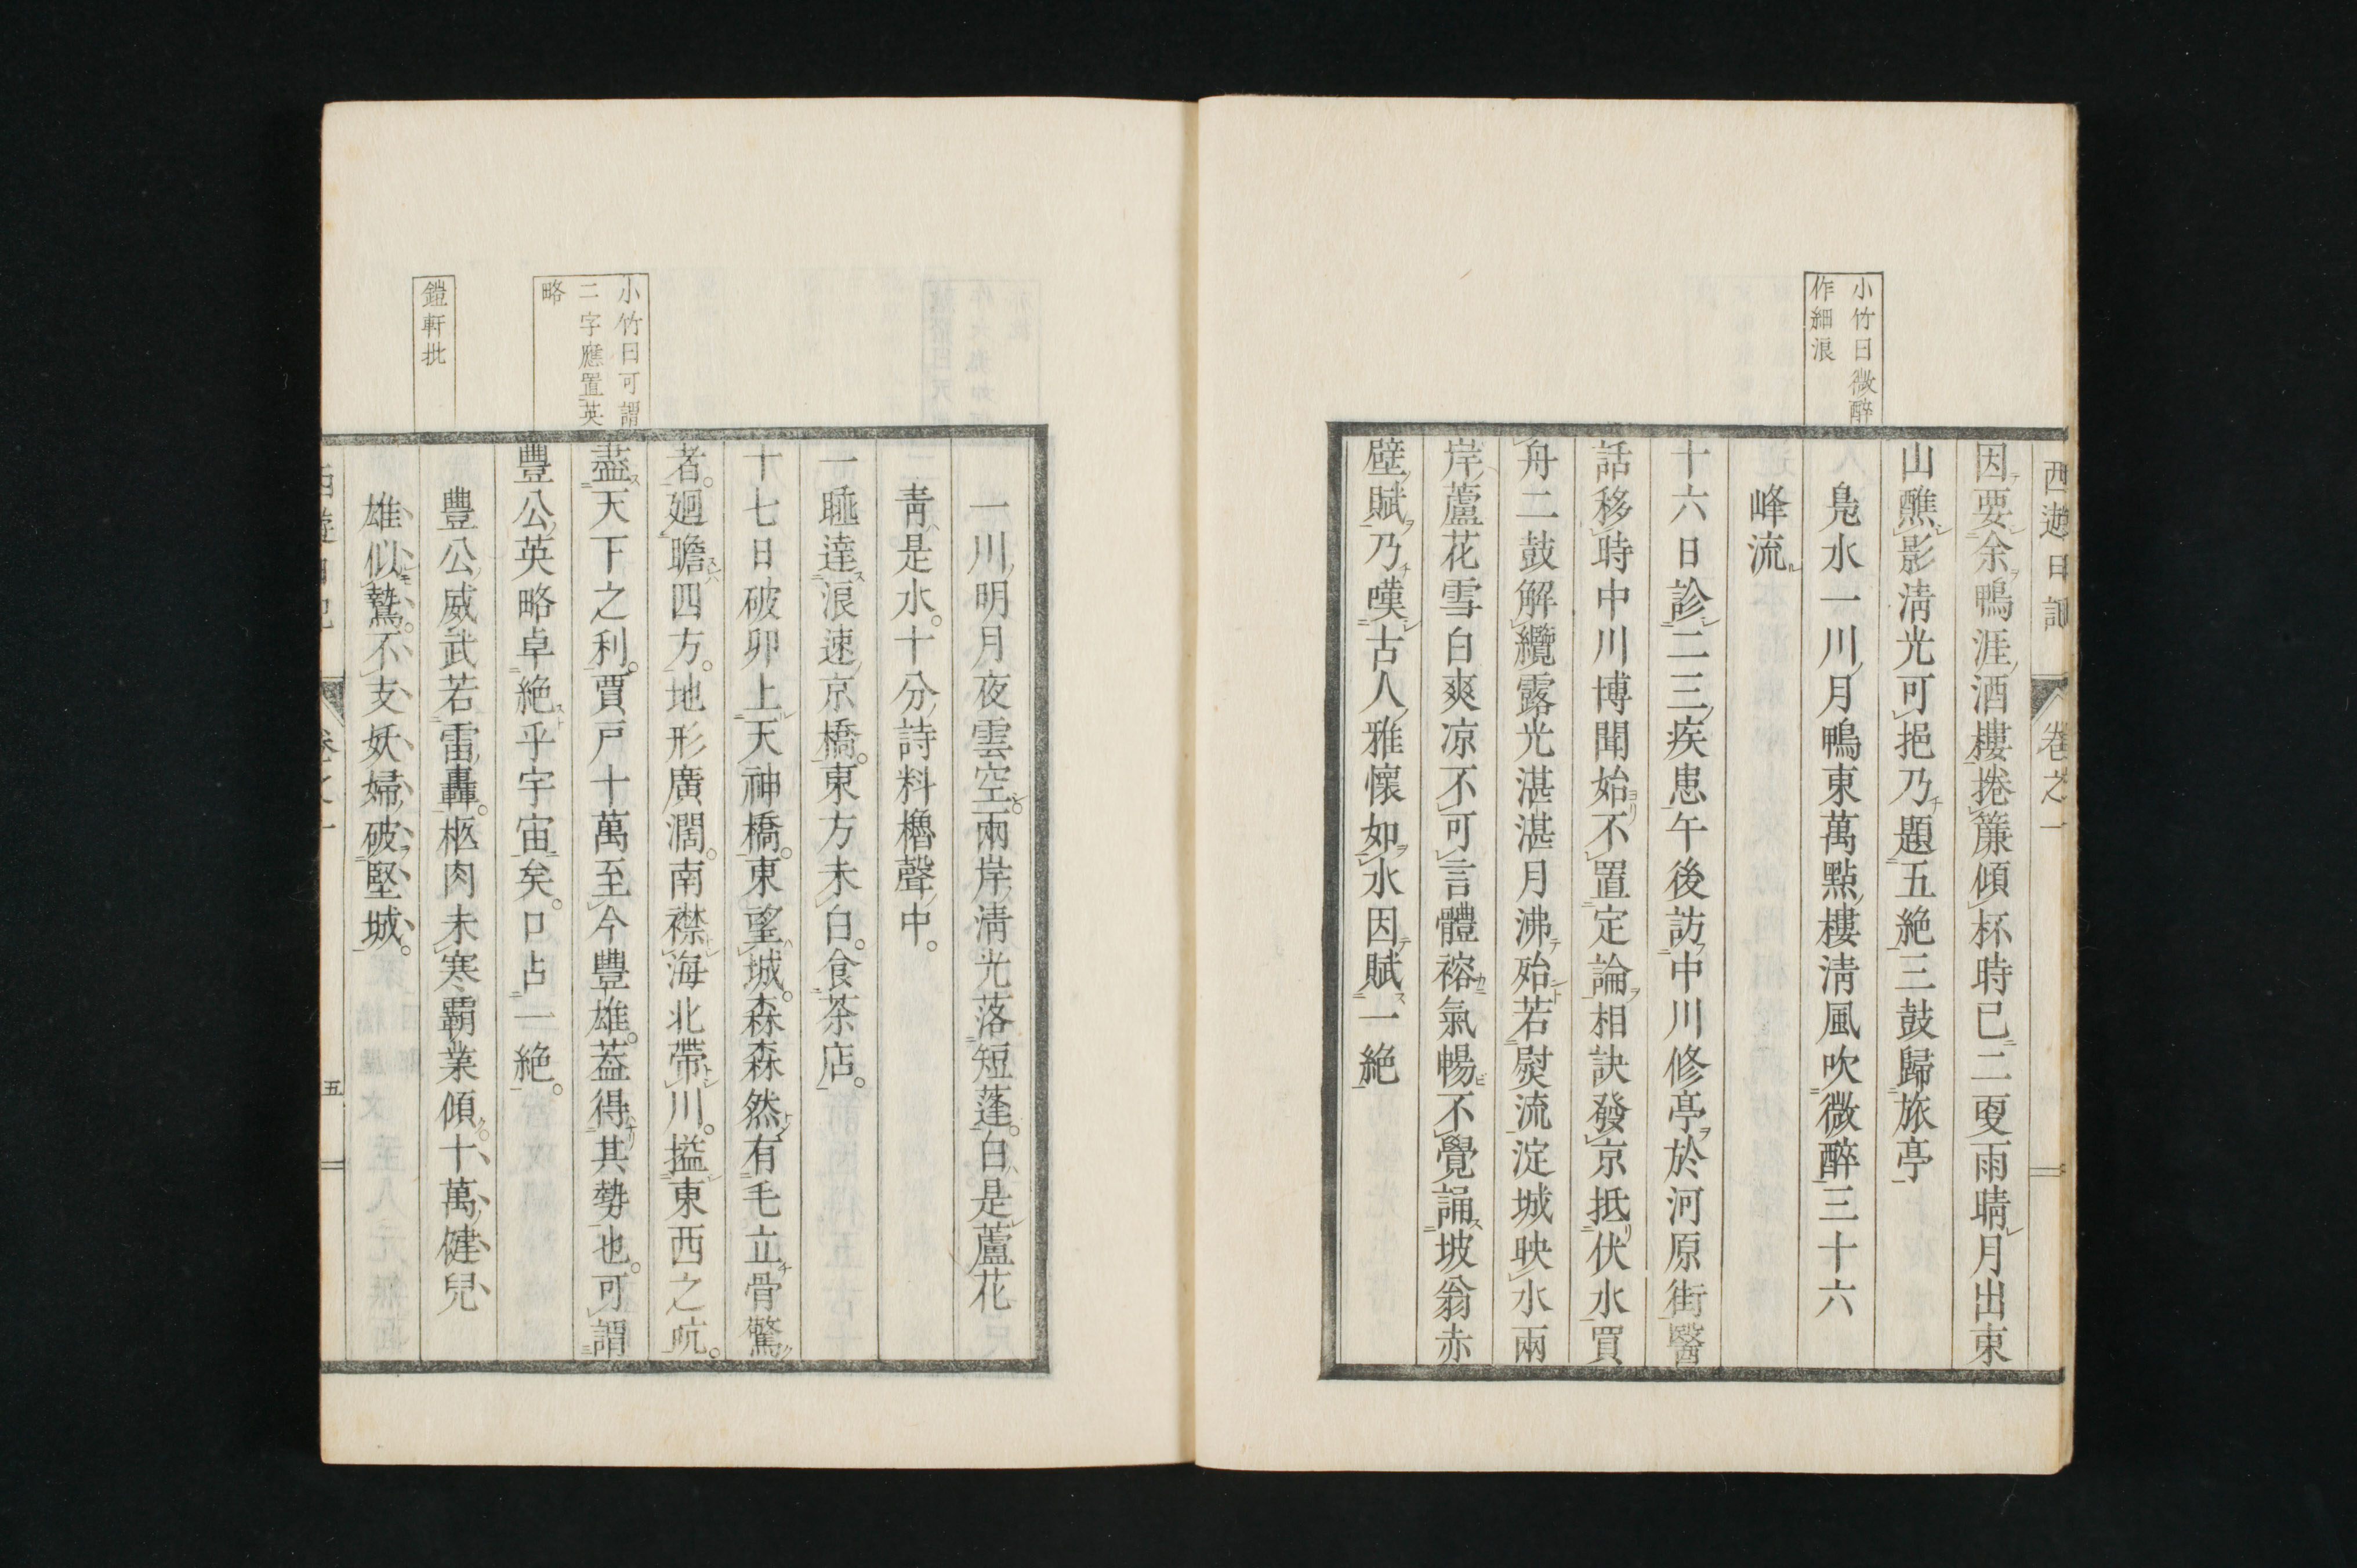 西遊日記
卷之一
小竹曰微醉
作細浪
因要余鴨涯酒樓捲簾傾杯時已二更雨晴月出東
山醮影淸光可挹乃題五絶三鼓歸旅亭
凫水一川月鴨東萬點樓淸風吹微醉三十六
峰流
十六日診二三疾患午後訪中川修亭於河原街醫
話移時中川博聞始不置定論相訣發京抵伏水買
舟二鼓解纜露光湛湛月沸殆若熨流淀城映水兩
岸蘆花雪白爽凉不可言體褣氣暢不覺誦坡翁赤
壁賦乃嘆古人雅懷如水因賦一絶
小竹曰可謂
二字應置英
略
鎧軒批
一川明月夜雲空。兩岸淸光落短蓬。白是蘆花
靑是水。十分詩料櫓聲中。
一睡達浪速京橋。東方未白。食茶店。
十七日破卯上天神橋。東望城。森森然有毛立骨驚
者。廻瞻四方。地形廣濶。南襟海北帶川。搤東西之吭。
盡天下之利。賈戸十萬至今豐雄。葢得其勢也。可謂
豐公英略卓絶乎宇宙矣。口占一絶。
豐公威武若雷轟。柩肉未寒覇業傾。十萬健兒
雄似鷙。不支妖婦破堅城。
西遊日記
卷之一
五